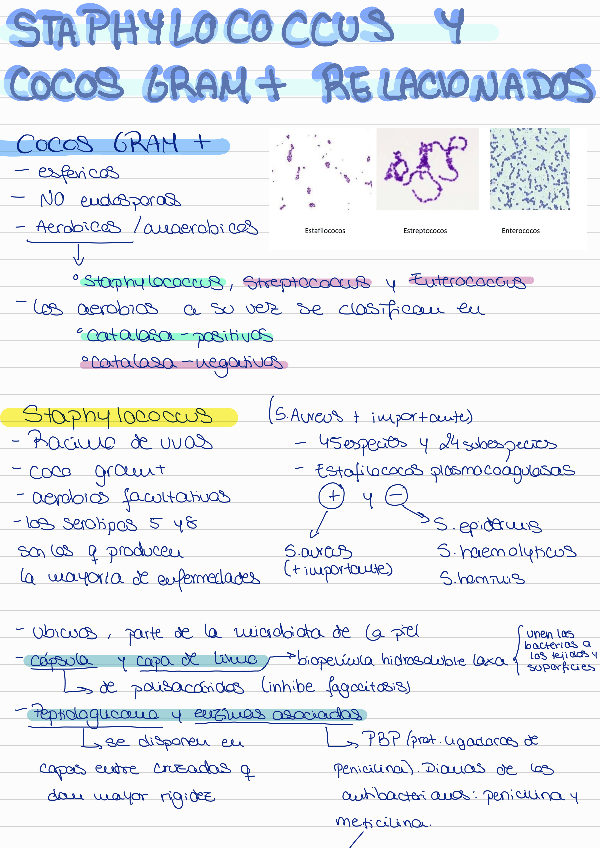 STAPHYLOCOCCUS Y
COCOS GRAM + RELACIONADOS
COCOS GRAM +
- esféricos
- NO endosporas
- Aerobicos / anaerobicos
Estafilococos
Estreptococos
Enterococos
° Staphylococcus, Streptococcus y Enterococcus
- Los aerobios a su vez se clasifican en
° catalasa - positivos
° catalasa - negativos
Staphylococcus (S. Aureus + importante)
- Racimo de uvas
- coco gram +
- aerobios facultativos
- los serotipos 5 y 8
son los q producen
la mayoría de enfermedades
- 45 especies y 24 subespecies
- Estafilococos plasmocoagulasas
+ y -
S. aureus
(+ importante)
S. epidermis
S. haemolyticus
S. hominis
- Ubicuos, parte de la microbiota de la piel
- cápsula y capa de limo → biopelícula hidrosoluble laxa
unen las
bacterias a
los tejidos y
superficies
de polisacáridos (inhibe fagocitosis)
- Peptidoglucano y enzimas asociadas
se disponen en
capas entre cruzadas q
dan mayor rigidez
PBP (prot. ligadoras de
penicilina). Dianas de los
antibacterianos: penicilina y
meticilina.